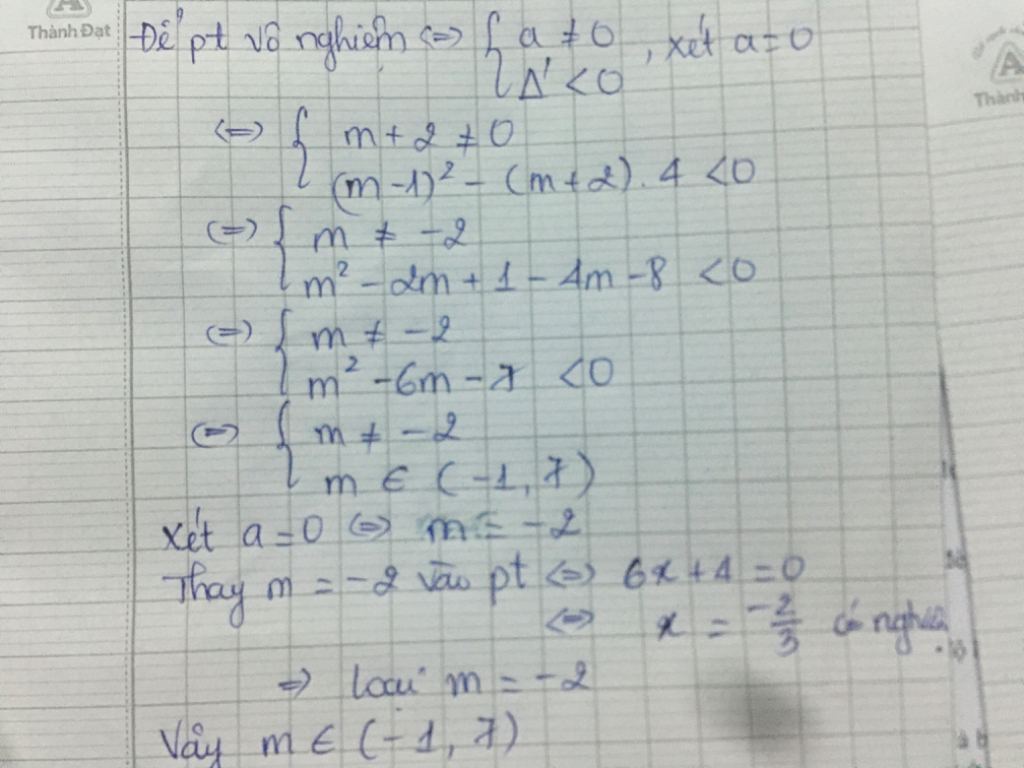 Thành Đạt
Để pt vô nghiệm <=> { a ≠ 0 , xét a = 0
Δ' < 0
<=> { m + 2 ≠ 0
(m - 1)² - (m + 2) . 4 < 0
(=) { m ≠ -2
m² - 2m + 1 - 4m - 8 < 0
(=) { m ≠ -2
m² - 6m - 7 < 0
<=> { m ≠ -2
m ∈ (-1, 7)
Xét a = 0 <=> m = -2
Thay m = -2 vào pt <=> 6x + 4 = 0
<=> x = -2/3 có nghiệ
=> loại m = -2
Vậy m ∈ (-1, 7)
Thành